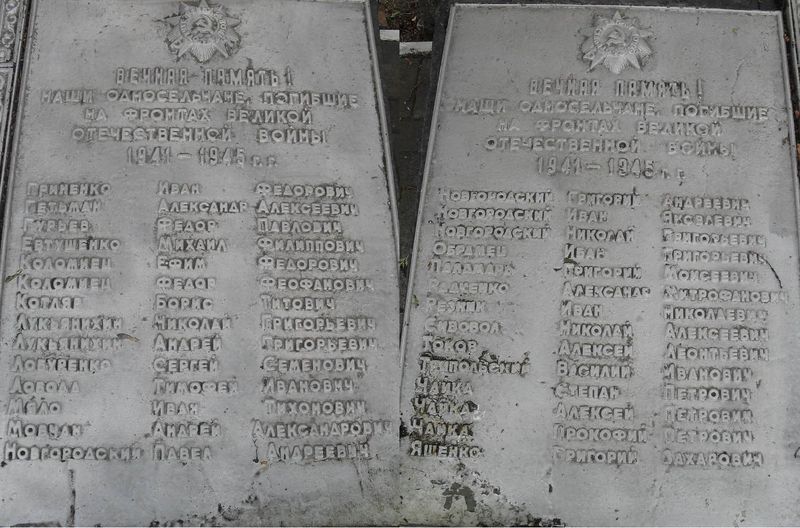 ВЕЧНАЯ ПАМЯТЬ!
НАШИ ОДНОСЕЛЬЧАНЕ, ПОГИБШИЕ
НА ФРОНТАХ ВЕЛИКОЙ
ОТЕЧЕСТВЕННОЙ ВОЙНЫ
1941 – 1945 г.г.
ГРИНЕНКО ИВАН ФЕДОРОВИЧ
ГЕТЬМАН АЛЕКСАНДР АЛЕКСЕЕВИЧ
ГУРЬЕВ ФЕДОР ПАВЛОВИЧ
ЕВТУШЕНКО МИХАИЛ ФИЛИППОВИЧ
КОЛОМИЕЦ ЕФИМ ФЕДОРОВИЧ
КОЛОМИЕЦ ФЕДОР ФЕОФАНОВИЧ
КОТЛЯР БОРИС ТИТОВИЧ
ЛУКЬЯНИХИН НИКОЛАЙ ГРИГОРЬЕВИЧ
ЛУКЬЯНИХИН АНДРЕЙ ГРИГОРЬЕВИЧ
ЛОБУРЕНКО СЕРГЕЙ СЕМЕНОВИЧ
ЛОБОДА ТИМОФЕЙ ИВАНОВИЧ
ИВАН ТИХОНОВИЧ
МОВЧАН АНДРЕЙ АЛЕКСАНДРОВИЧ
НОВГОРОДСКИЙ ПАВЕЛ АНДРЕЕВИЧ
ВЕЧНАЯ ПАМЯТЬ!
НАШИ ОДНОСЕЛЬЧАНЕ, ПОГИБШИЕ
НА ФРОНТАХ ВЕЛИКОЙ
ОТЕЧЕСТВЕННОЙ ВОЙНЫ
1941 – 1945 г.г.
НОВГОРОДСКИЙ ГРИГОРИЙ АНДРЕЕВИЧ
НОВГОРОДСКИЙ ИВАН ЯКОВЛЕВИЧ
НОВГОРОДСКИЙ НИКОЛАЙ ГРИГОРЬЕВИЧ
ОБРАНЕЦ ИВАН ГРИГОРЬЕВИЧ
ПАЛАМАРЬ ГРИГОРИЙ МОИСЕЕВИЧ
РАДЧЕНКО АЛЕКСАНДР МИТРОФАНОВИЧ
РЕЗНИК ИВАН НИКОЛАЕВИЧ
СИВОВОЛ НИКОЛАЙ АЛЕКСЕЕВИЧ
ТОКОВ АЛЕКСЕЙ ЛЕОНТЬЕВИЧ
ТРИПОЛЬСКИЙ ВАСИЛИЙ ИВАНОВИЧ
ЧАЙКА СТЕПАН ПЕТРОВИЧ
ЧАЙКА АЛЕКСЕЙ ПЕТРОВИЧ
ЧАЙКА ПРОКОФИЙ ПЕТРОВИЧ
ЯЩЕНКО ГРИГОРИЙ ЗАХАРОВИЧ